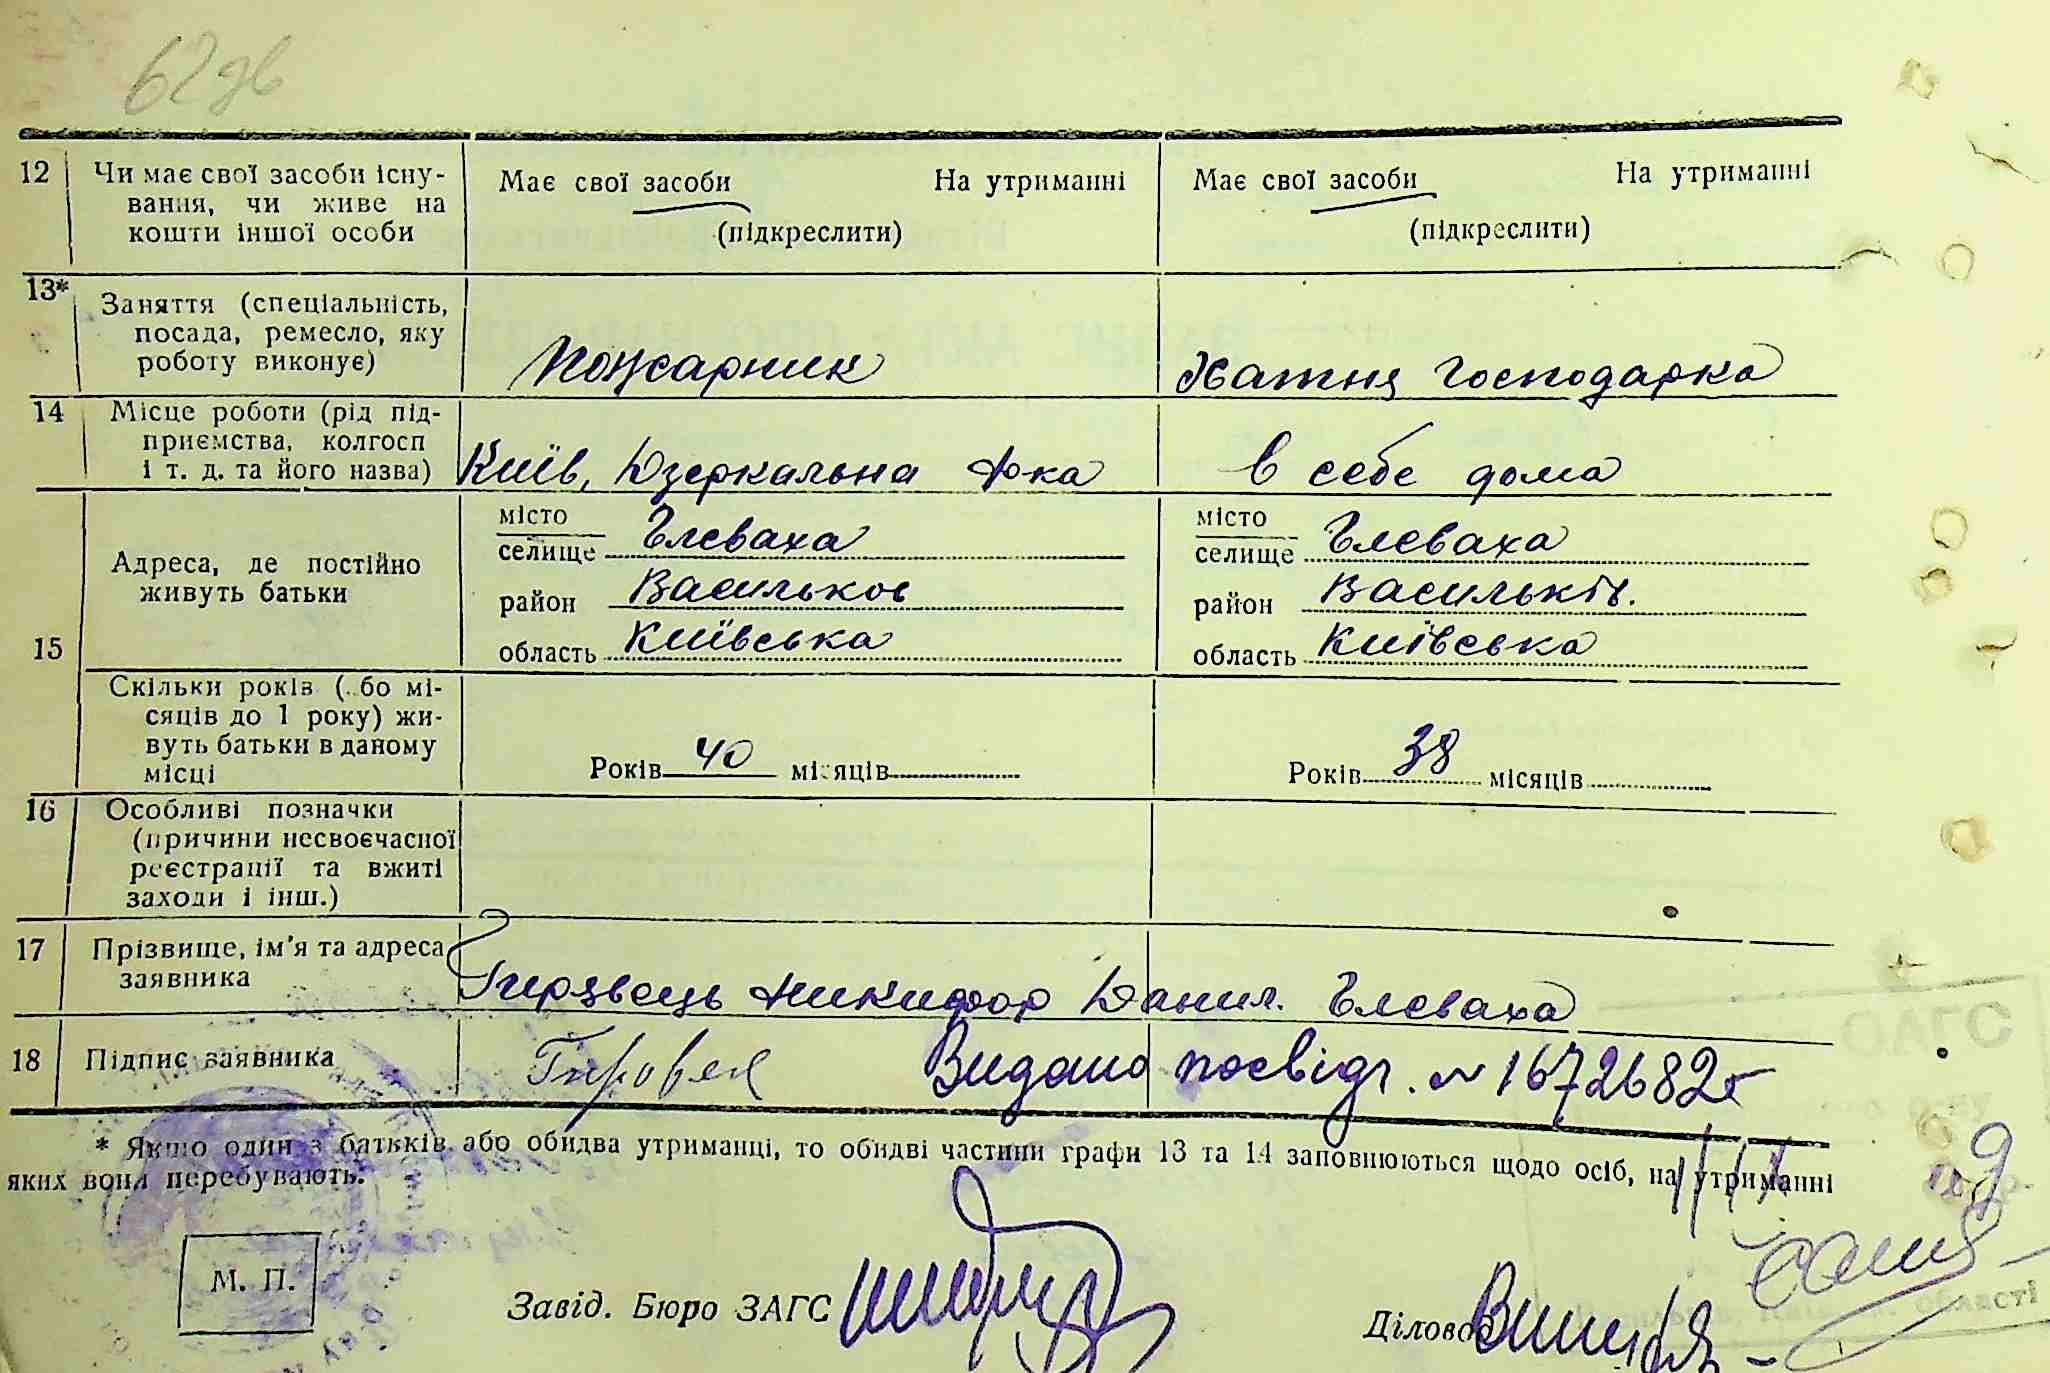 62дв
12 Чи має свої засоби існу-
вання, чи живе на
кошти іншої особи
Має свої засоби На утриманні
(підкреслити)
Має свої засоби На утриманні
(підкреслити)
13* Заняття (спеціальність,
посада, ремесло, яку
роботу виконує)
Пожарник
Хатня господарка
14 Місце роботи (рід під-
приємства, колгосп
і т. д. та його назва)
Київ, Дзеркальна ф-ка
в себе дома
15 Адреса, де постійно
живуть батьки
місто
селище Глеваха
район Васильков
область Київська
місто
селище Глеваха
район Васильків.
область Київська
Скільки років (або мі-
сяців до 1 року) жи-
вуть батьки в даному
місці
Років 40 місяців
Років 38 місяців
16 Особливі позначки
(причини несвоєчасної
реєстрації та вжиті
заходи і інш.)
17 Прізвище, ім'я та адреса
заявника
Никифор Данил. Глеваха
18 Підпис заявника
Видано посвідч. №
* Якщо один з батьків або обидва утриманці, то обидві частини графи 13 та 14 заповнюються щодо осіб, на утриманні
яких вони перебувають.
М. П.
Завід. Бюро ЗАГС
Діловод
ЗАГС
області